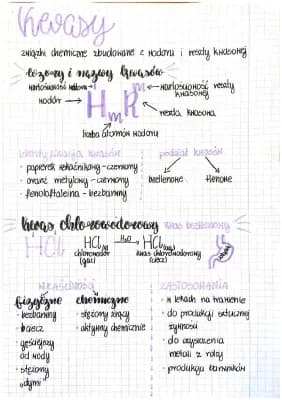 Kwasy
związki chemiczne zbudowane z wodoru i reszty kwasowej
wzory i nazwy kwasów
wartościowość wodoru → I m ← wartościowość reszty kwasowej
wodór → HmR ← reszta kwasowa
liczba atomów wodoru
identyfikacja kwasów
• papierek wskaźnikowy - czerwony
• oranż metylowy - czerwony
• fenoloftaleina - bezbarwny
podział kwasów
beztlenowe
tlenowe
Kwas chlorowodorowy
kwas beztlenowy
HCl
HCl(g) H₂O→ HCl(aq)
chlorowodór (gaz)
kwas chlorowodorowy (ciecz)
WŁAŚCIWOŚCI
fizyczne
• bezbarwny
• ciecz
• gęstszy od wody
• stężony dymi
chemiczne
• stężony żrący
• aktywny chemicznie
ZASTOSOWANIA
• w lekach na trawienie
• do produkcji sztucznej żywności
• do oczyszczania metali z rdzy
• produkcja barwników